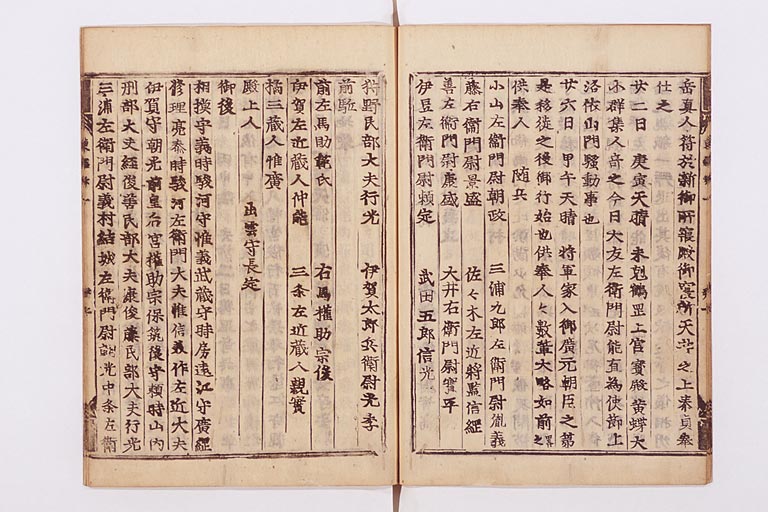 岳真人符於新御所寝殿御寝所天井之上泰貞参
仕之
廿一日庚寅天晴 未剋鶴罡上宮寳殿黄蝶大
小群集人奇之今日大友左衛門尉能直為使節上
洛依山門騒動事也
廿六日 甲午天晴 将軍家入御廣元朝臣之第
是移徙之後御行始也供奉人々数輩大略如前
供奉人 随兵
小山左衛門尉朝政 三浦九郎左衛門尉胤義
藤右衛門尉景盛 佐々木左近将監信綱
善左衛門尉康盛 大井右衛門尉實平
伊豆左衛門尉頼定 武田五郎信光
狩野民部大夫行光 伊賀太郎兵衛尉光季
前駈
前左馬助範氏 右馬權助宗保
伊賀左近蔵人仲能 三条左近蔵人親實
橘三蔵人惟廣
殿上人 出雲守長定
御後
相摸守義時駿河守惟義武蔵守時房遠江守廣經
修理亮泰時駿河左衛門大夫惟信美作左近大夫
伊賀守朝光前皇后宮權助宗保筑後守頼時山内
刑部大夫經俊善民部大夫康俊藤民部大夫行光
三浦左衛門尉義村結城左衛門尉朝光中条左衛